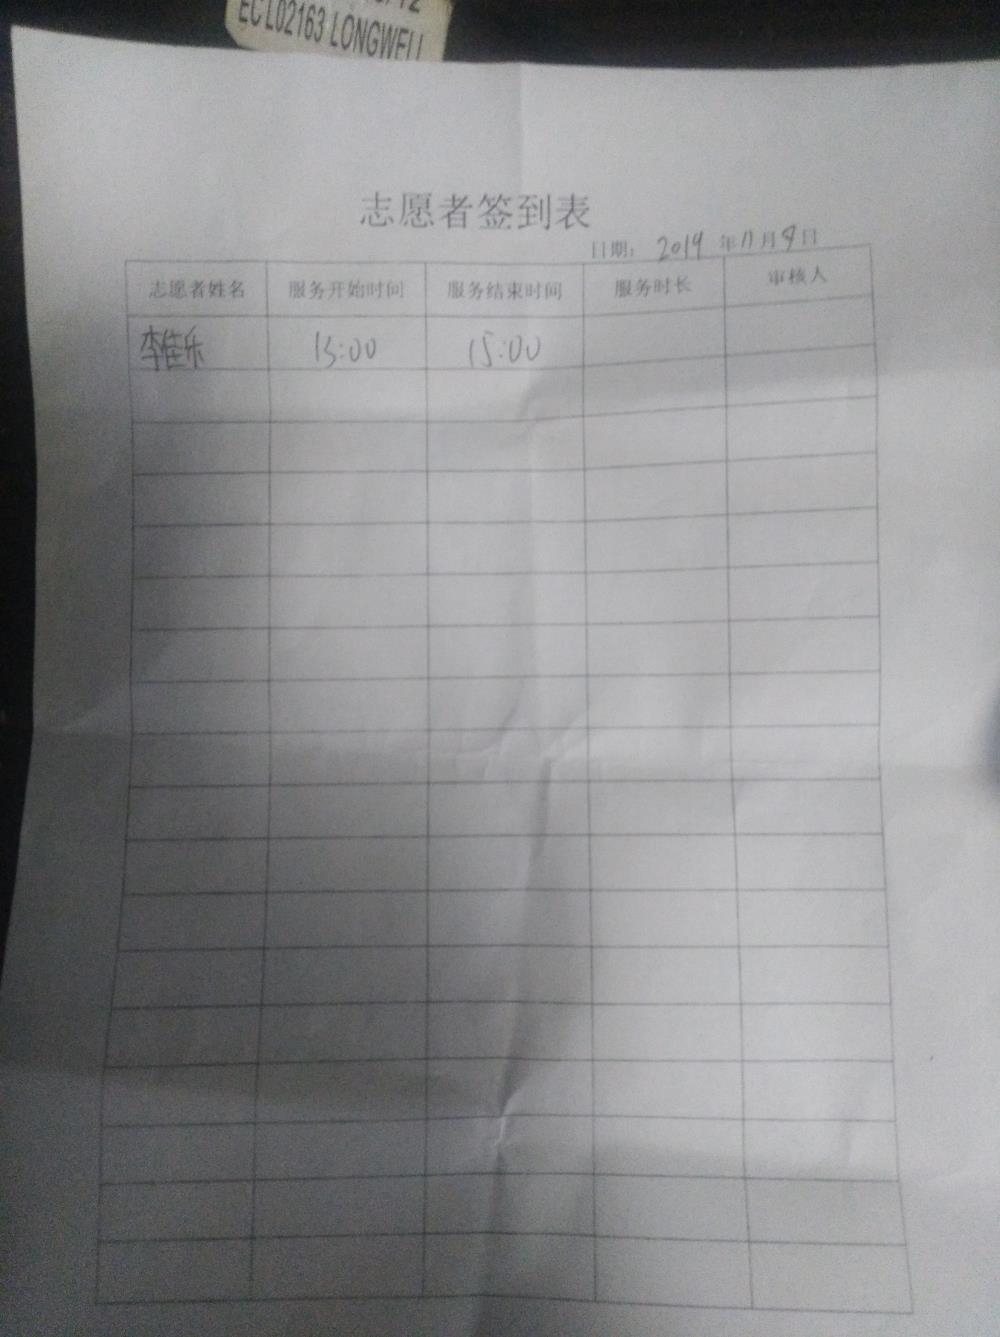 EC L02163 LONGWELL
志愿者签到表
日期： 2019 年 11 月 8 日
志愿者姓名 服务开始时间 服务结束时间 服务时长 审核人
李佳乐 13:00 15:00